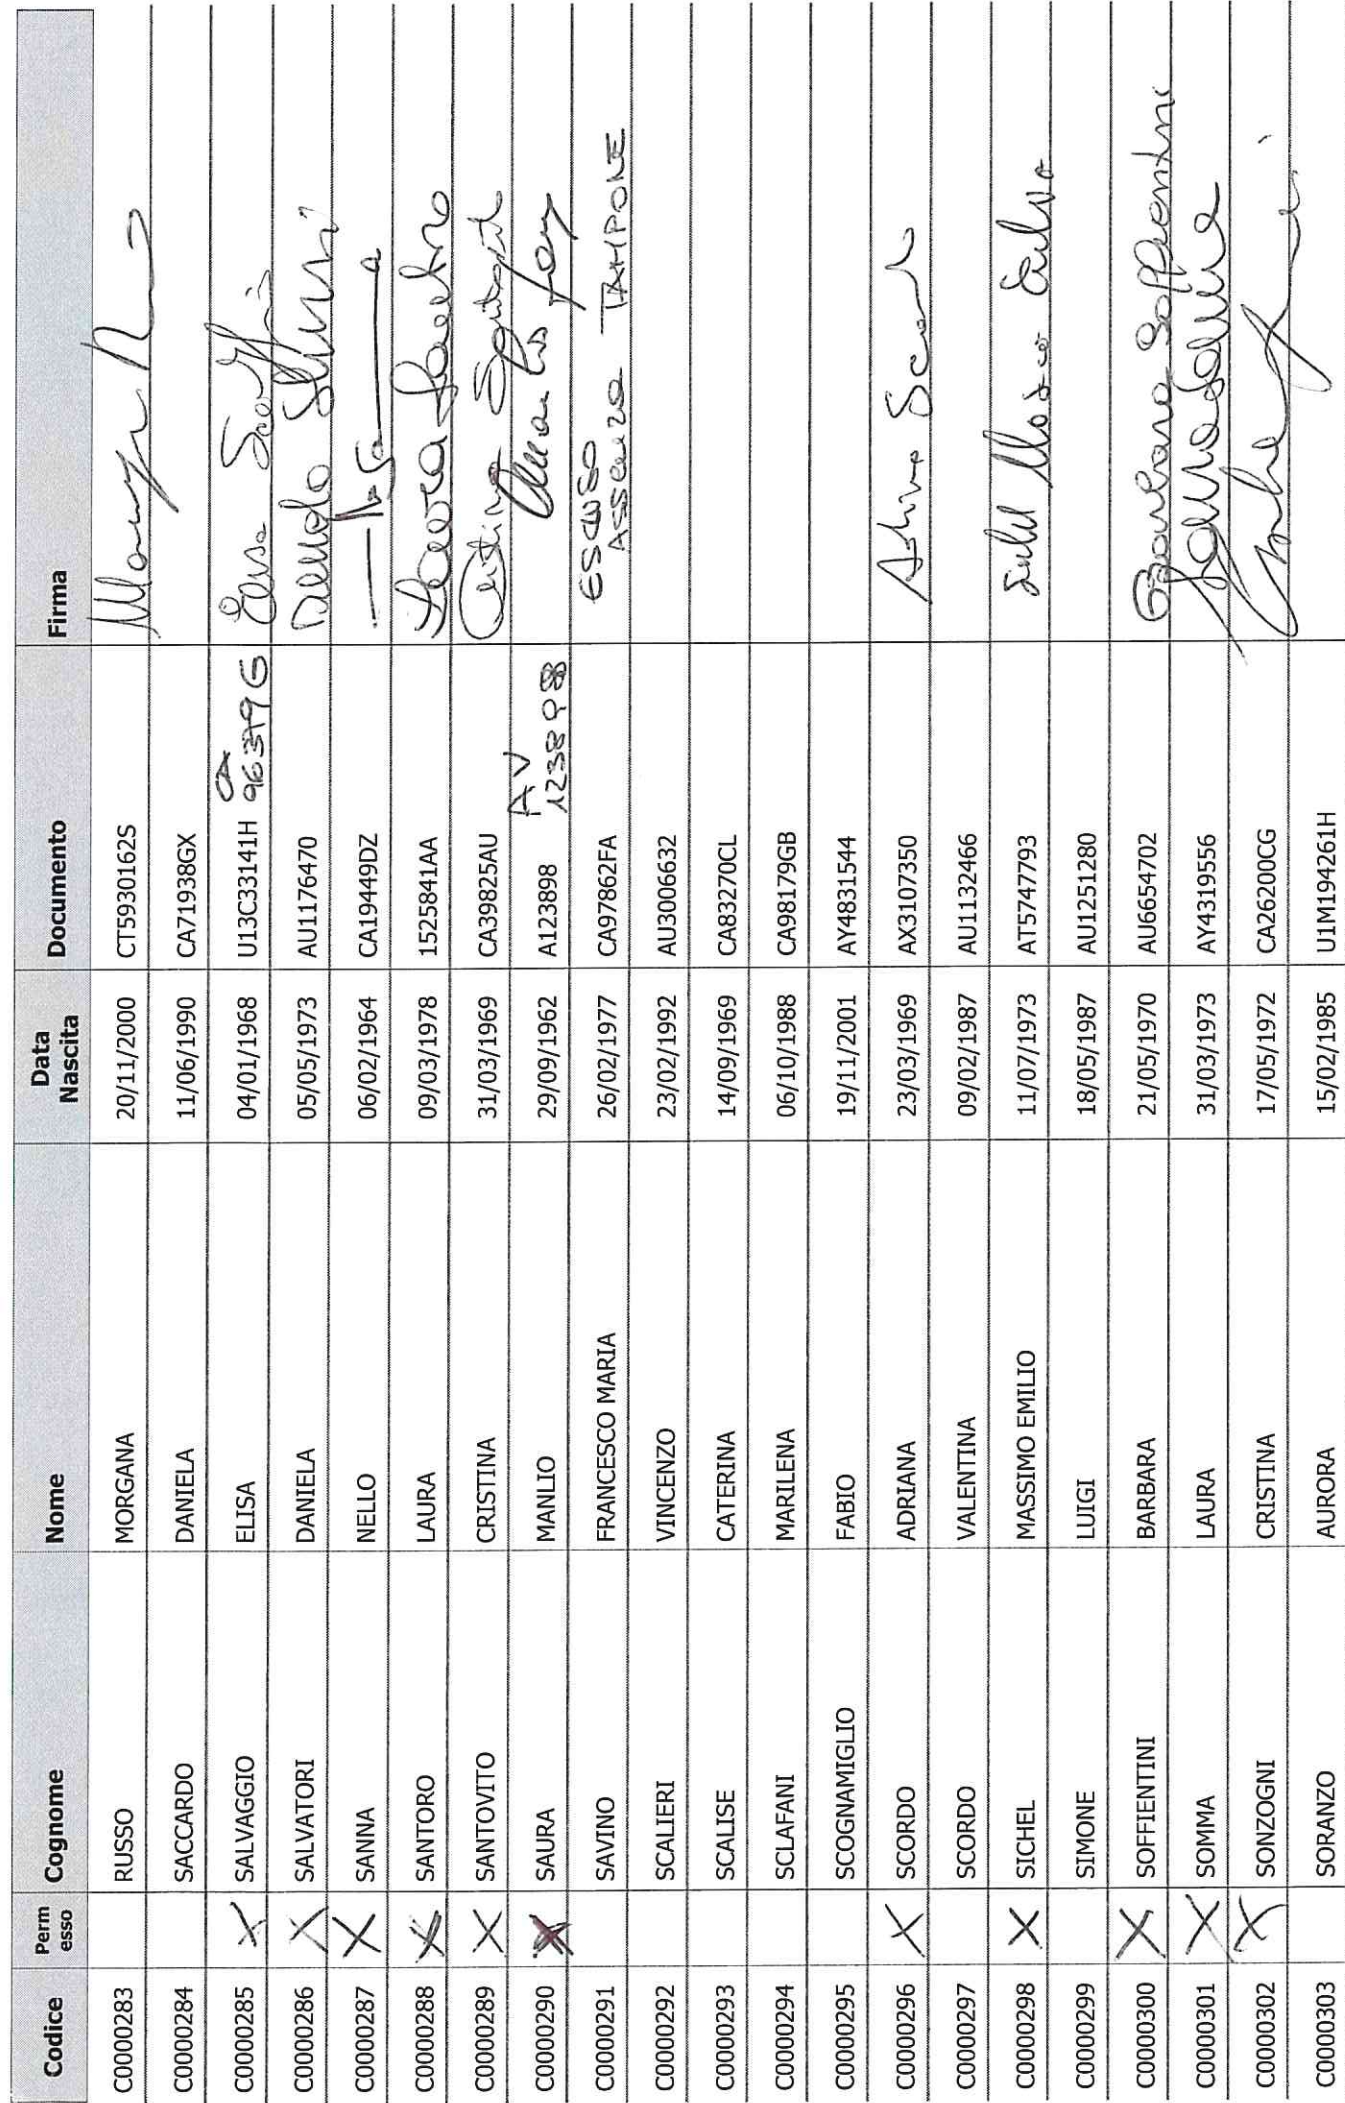 Codice Permesso Cognome Nome Data Nascita Documento Firma
C0000283 RUSSO MORGANA 20/11/2000 CT5930162S
C0000284 SACCARDO DANIELA 11/06/1990 CA71938GX
C0000285 X SALVAGGIO ELISA 04/01/1968 U13C33141H CA 96379 G Elisa
C0000286 X SALVATORI DANIELA 05/05/1973 AU1176470
C0000287 X SANNA NELLO 06/02/1964 CA19449DZ
C0000288 X SANTORO LAURA 09/03/1978 1525841AA Laura Santoro
C0000289 X SANTOVITO CRISTINA 31/03/1969 CA39825AU Cristina Santovito
C0000290 X SAURA MANLIO 29/09/1962 A123898 AV 123898
C0000291 SAVINO FRANCESCO MARIA 26/02/1977 CA97862FA ESCLUSO
ASSENZA TAMPONE
C0000292 SCALIERI VINCENZO 23/02/1992 AU3006632
C0000293 SCALISE CATERINA 14/09/1969 CA83270CL
C0000294 SCLAFANI MARILENA 06/10/1988 CA98179GB
C0000295 SCOGNAMIGLIO FABIO 19/11/2001 AY4831544
C0000296 X SCORDO ADRIANA 23/03/1969 AX3107350
C0000297 SCORDO VALENTINA 09/02/1987 AU1132466
C0000298 X SICHEL MASSIMO EMILIO 11/07/1973 AT5747793
C0000299 SIMONE LUIGI 18/05/1987 AU1251280
C0000300 X SOFFIENTINI BARBARA 21/05/1970 AU6654702 Barbara Soffientini
C0000301 X SOMMA LAURA 31/03/1973 AY4319556
C0000302 X SONZOGNI CRISTINA 17/05/1972 CA26200CG
C0000303 SORANZO AURORA 15/02/1985 U1M194261H